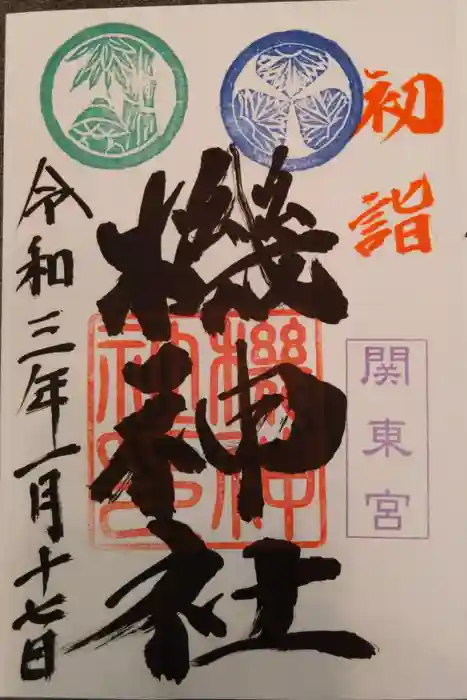 初詣
関東宮
機神社
機神
社印
令和三年一月十七日